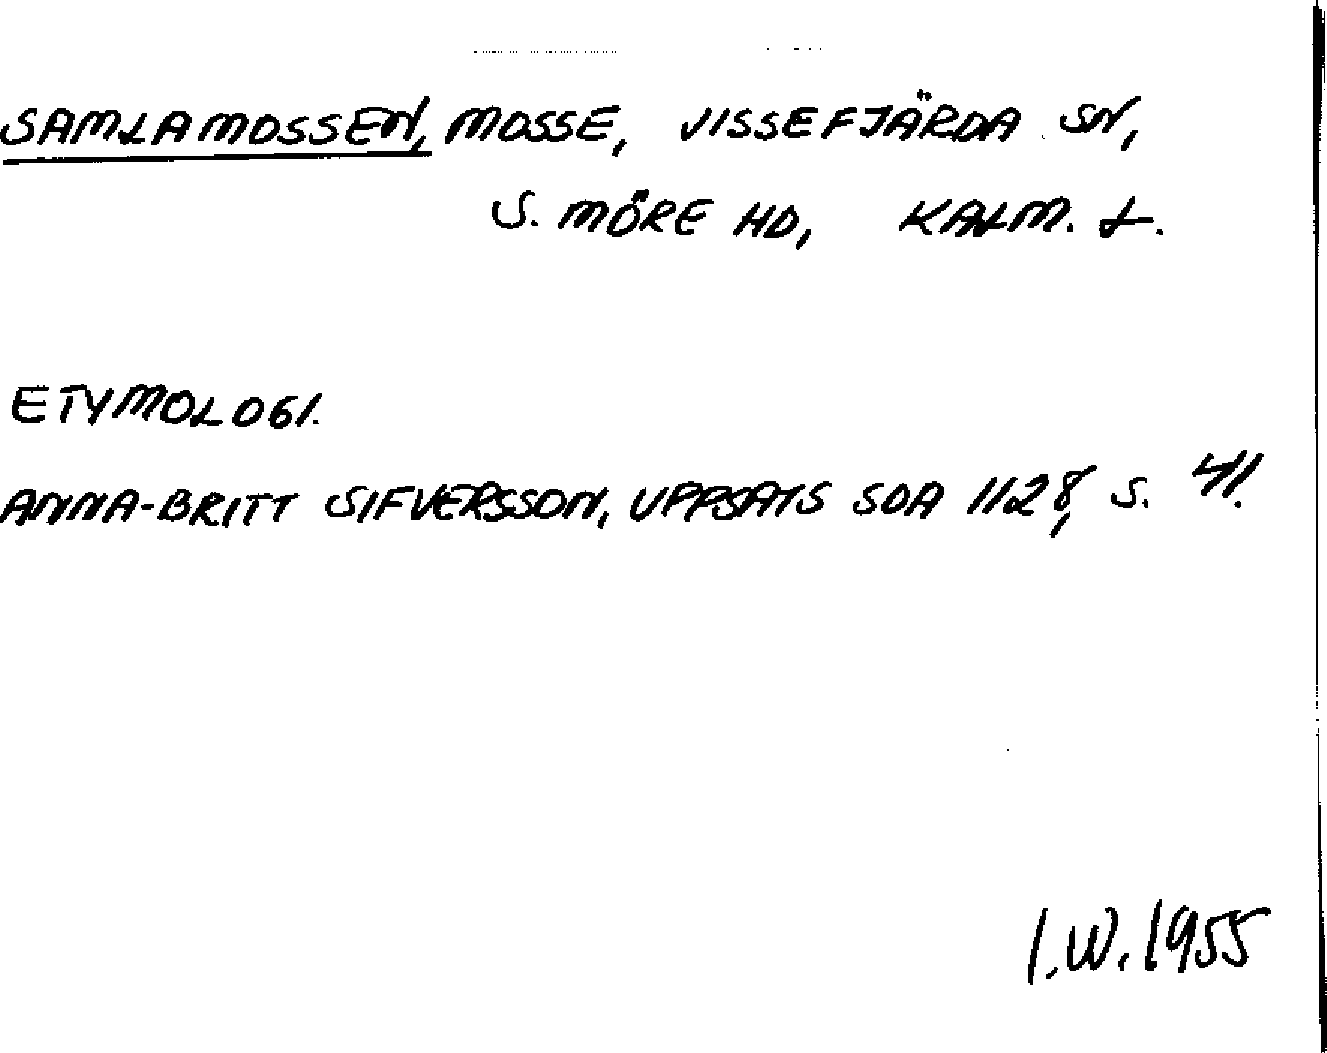 SAMLAMOSSEN, MOSSE, VISSEFJÄRDA SN,
S. MÖRE HD, KALM. L.
ETYMOLOGI.
ANNA-BRITT SIFVERSSON, UPPSATS SOA 1128, S. 41.
I.W. 1955